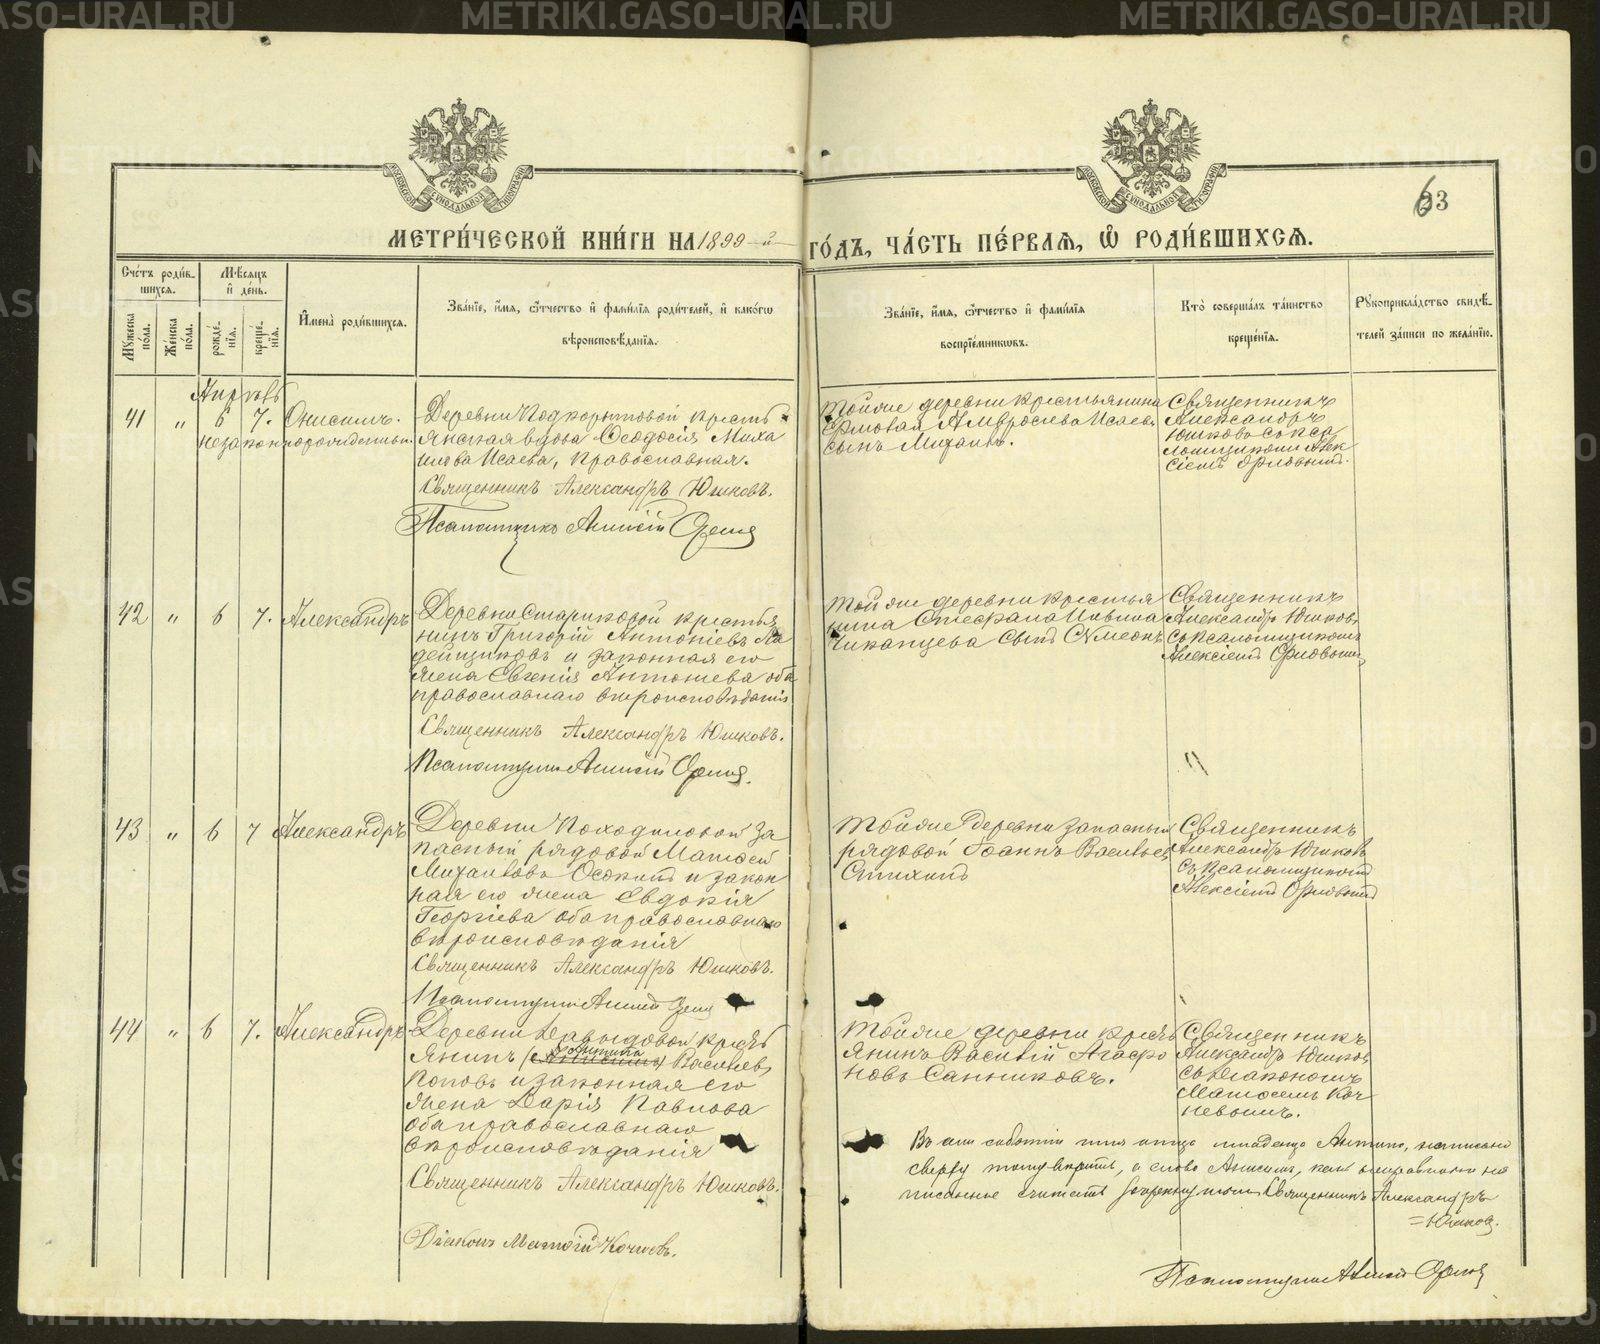 METRIKI.GASO-URAL.RU
МЕТРИ́ЧЕСКОЙ КНИ́ГИ НА 1899-й ГО́ДЪ, ЧА́СТЬ ПЕ́РВАЯ, Ѡ҆ РОДИ́ВШИХСЯ.
63
МОСКОВСКОЙ СѴНОДАЛЬНОЙ ТИПОГРАФIИ
МОСКОВСКОЙ СѴНОДАЛЬНОЙ ТИПОГРАФIИ
Сче́тъ роди́вшихся.
Му́жеска по́ла.
Же́нска по́ла.
Мѣ́сяцъ и҆ де́нь.
рожде́нїя.
креще́нїя.
И҆мена̀ роди́вшихся.
Зва́нїе, и҆́мя, ѻ҆́тчество и҆ фами́лїя роди́телей, и҆ како́гѡ
вѣроисповѣ́данїя.
Зва́нїе, и҆́мя, ѻ҆́тчество и҆ фами́лїя
воспрїе́мникѡвъ.
Кто̀ соверша́лъ та́инство
креще́нїя.
Рꙋкоприкла́дство свидѣ́телей за́писи по жела́нїю.
Апрѣль
41 " 6 7. Онисимъ.
незаконнорожденный.
Деревни Подкорытовой кресть
янская вдова Ѳеодосія Миха
илова Исаева, православная.
Священникъ Александръ Юшковъ.
Псаломщикъ Алексій Орлов
Тойже деревни крестьянина
Ермолая Амвросіева Исаева
сынъ Михаилъ.
Священникъ
Александръ
Юшковъ съ пса
ломщикомъ Алек
сіемъ Орловымъ.
42 " 6 7. Александръ
Деревни Стариковой крестья
нинъ Григорій Антоніевъ Ла
дейщиковъ и законная его
жена Евгенія Антоніева оба
православнаго вѣроисповѣданія
Священникъ Александръ Юшковъ.
Псаломщикъ Алексій Орлов.
Тойже деревни крестья
нина Стефана Иовина
Чиканцева сынъ Сѵмеонъ
Священникъ
Александръ Юшковъ
съ псаломщикомъ
Алексіемъ Орловымъ
43 " 6 7 Александръ
Деревни Походиловой за
пасный рядовой Матѳей
Михаиловъ Осокинъ и закон
ная его жена Евдокія
Георгіева оба православнаго
вѣроисповѣданія
Священникъ Александръ Юшковъ.
Псаломщикъ Алексій Орлов
Тойже деревни запасный
рядовой Іоаннъ Васильев
Стихинъ
Священникъ
Александръ Юшковъ
съ псаломщикомъ
Алексіемъ Орловымъ
44 " 6 7. Александръ
Деревни Давыдовой кресть
Антипа
янинъ (Анисимъ) Васильевъ
Поповъ и законная его
жена Дарія Павлова
оба православнаго
вѣроисповѣданія
Священникъ Александръ Юшковъ.
Діаконъ Матѳій Кочневъ.
Тойже деревни кресть
янинъ Василій Агафо
новъ Санниковъ.
Священникъ
Александръ Юшков
съ діакономъ
Матѳеемъ Коч
невымъ.
имя отца младенца Антипа, написано
сверху тому вѣрить, а слово Анисимъ, какъ неправильно на
писанное считать зачеркнутымъ Священникъ Александръ
=Юшков.
Псаломщикъ Алексій Орлов